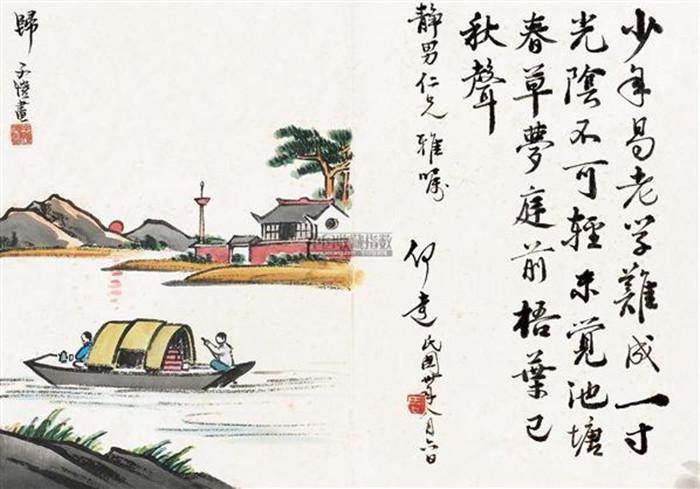 少年易老学難成一寸
光陰不可輕未覺池塘
春草夢庭前梧葉已
秋聲
静男仁兄雅嘱
民國
歸
子愷畫